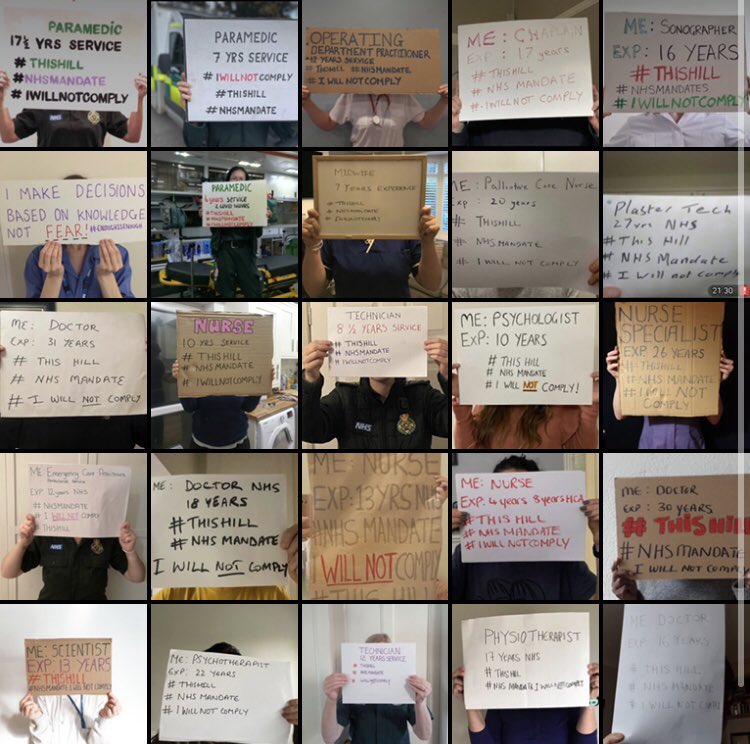 PARAMEDIC
17½ YRS SERVICE
# THISHILL
#NHSMANDATE
#IWILLNOTCOMPLY
NHS
PARAMEDIC
7 YRS SERVICE
#IWILLNOTCOMPLY
#THISHILL
#NHSMANDATE
OPERATING
DEPARTMENT PRACTITIONER
12 YEARS SERVICE
#THISHILL #NHSMANDATE
#I WILL NOT COMPLY
ME: CHAPLAIN
EXP: 17 years
# THIS HILL
# NHS MANDATE
#I WILL NOT COMPLY
ME: SONOGRAPHER
EXP: 16 YEARS
# THISHILL
#NHSMANDATES
#IWILLNOTCOMPLY
I MAKE DECISIONS
BASED ON KNOWLEDGE
NOT FEAR! #ENOUGHISENOUGH
PARAMEDIC
YEARS SERVICE
#THISHILL
#NHSMANDATE
MIDWIFE
7 YEARS EXPERIENCE
#THISHILL
#NHSMANDATE
#IWILLNOTCOMPLY
ME: Palliative Care Nurse
Exp: 20 years
# THISHILL
# NHS MANDATE
# I WILL NOT COMPLY
Plaster Tech
27yrs NHS
# This Hill
# NHS Mandate
# I Will not comply
21:30
ME: DOCTOR
EXP: 31 YEARS
# THIS HILL
# NHS MANDATE
# I WILL NOT COMPLY
NURSE
10 YRS SERVICE
# THISHILL
# NHS MANDATE
# IWILLNOTCOMPLY
TECHNICIAN
8 ½ YEARS SERVICE
# THISHILL
# NHSMANDATE
# IWILLNOTCOMPLY
NHS
ME: PSYCHOLOGIST
EXP: 10 YEARS
# THIS HILL
# NHS MANDATE
# I WILL NOT COMPLY!
NURSE
SPECIALIST
EXP 26 YEARS
#THISHILL
#NHS MANDATE
#I WILL NOT
COMPLY
ME Emergency Care Assistant
Ambulance Service
EXP 12 years NHS
# NHSMANDATE
# I WILL NOT COMPLY
# THISHILL
NHS
ME: DOCTOR NHS
18 YEARS
# THIS HILL
# NHS MANDATE
I WILL NOT COMPLY
ME: NURSE
EXP: 13 YRS NHS
#NHS MANDATE
I WILL NOT COMPLY
#THIS HILL
ME: NURSE
EXP: 4 years 8 years HCA
# THIS HILL
# NHS MANDATE
# I WILL NOT COMPLY
ME: DOCTOR
EXP: 30 YEARS
# THIS HILL
# NHS MANDATE
# I WILL NOT COMPLY
ME: SCIENTIST
EXP: 13 YEARS
#THISHILL
#NHSMANDATE I WILL NOT COMPLY
ME: PSYCHOTHERAPIST
EXP: 22 YEARS
# THISHILL
# NHS MANDATE
# I WILL NOT COMPLY
TECHNICIAN
12 YEARS SERVICE
THISHILL
NHS MANDATE
IWILLNOTCOMPLY
PHYSIOTHERAPIST
17 YEARS NHS
# THIS HILL
# NHS MANDATE I WILL NOT COMPLY
ME DOCTOR
EXP 16 YEARS
# THIS HILL
# NHS MANDATE
# I WILL NOT COMPLY